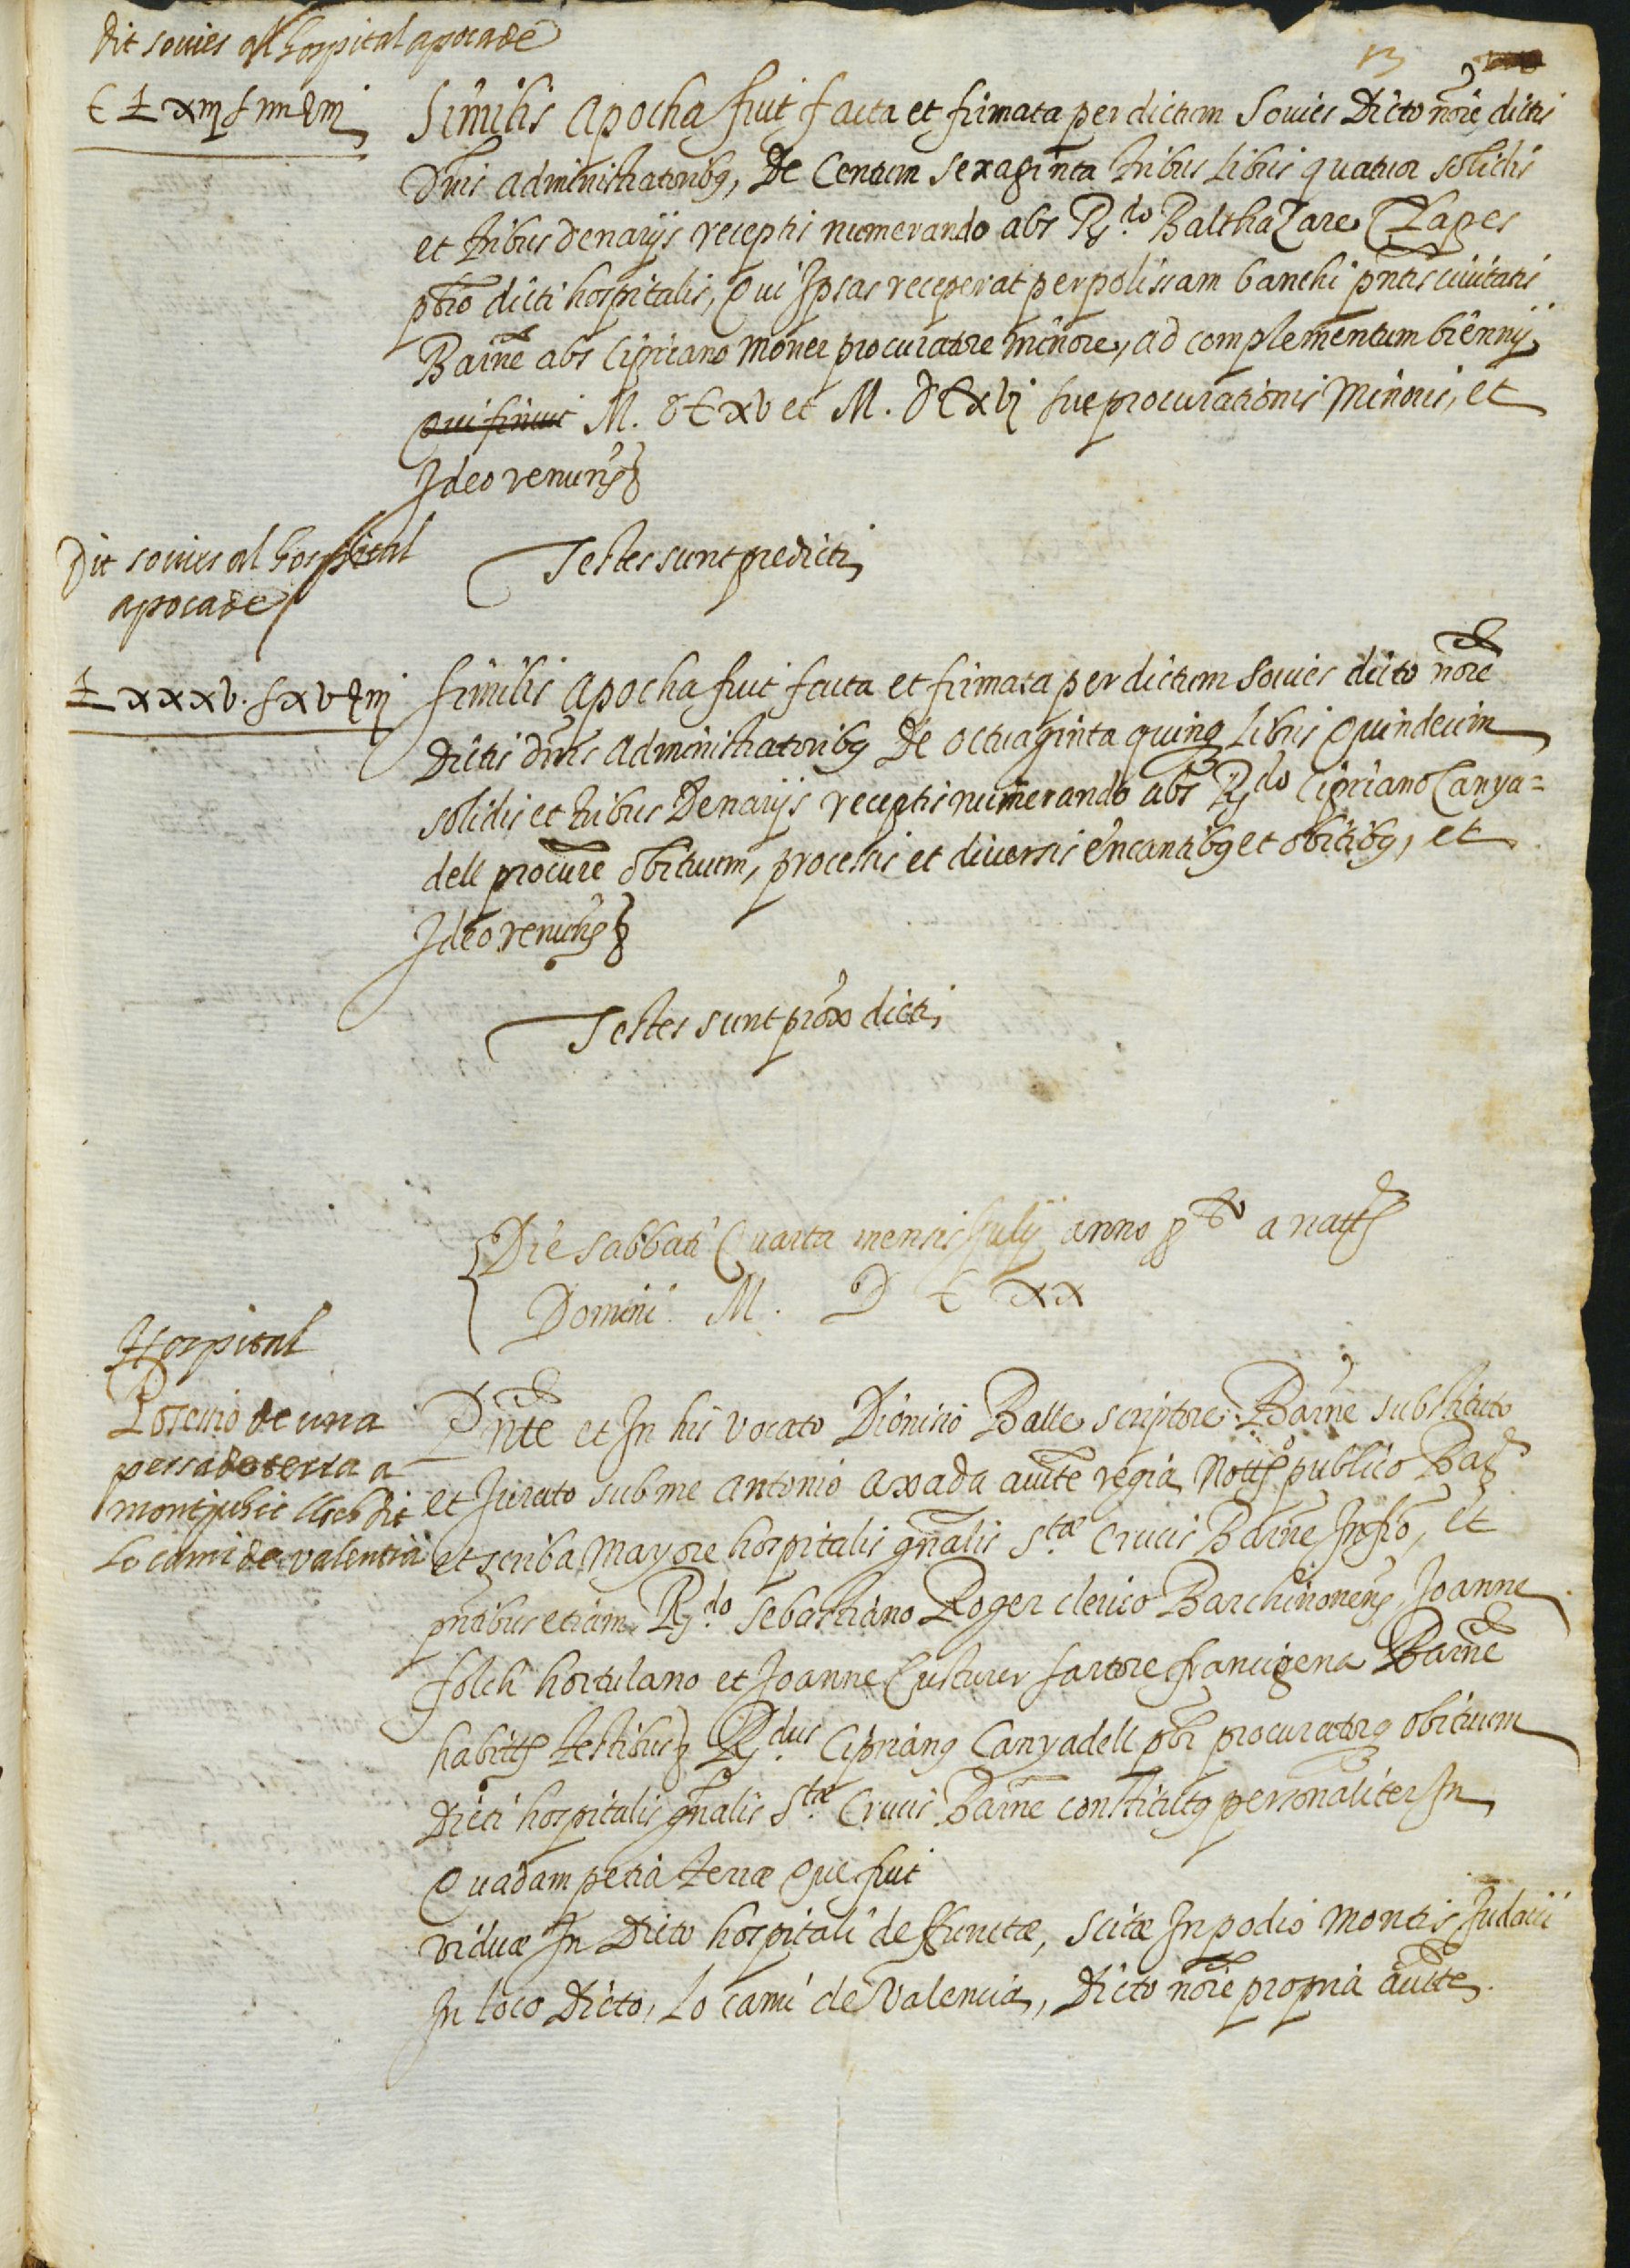 dit souies al hospital apoca de
C £ xiij s iiii d iij
13
Similis Apocha fuit facta et firmata per dictum Souies Dicto nõre dictis
Dñis administratoribq, De Centum sexaginta tribus Libris quatuor solidis
et tribus denarijs receptis numerando abs Rdo Balthazare Clapes
pbro dicti hospitalis, Qui Ipsas receperat per polissam banchi pntis ciuitatis
Barne abs Cipriano Moner procuratore minore, ad complementum biennij
qui finiuit M. DC xv et M. DC xvj sue procurationis Minoris, et
Ideo renunts
Testes sunt predicti
Dit souies al hospital
apoca de
£ xxxv. s xv d iij
Similis Apocha fuit facta et firmata per dictum Souies dicto nõre
Dictis dñis Administratoribq De octuaginta quinq Libris Quindecim
solidis et tribus Denarijs receptis numerando abs Rdo Cipriano Canya=
dell procure obituum, processis et diuersis encantibq et obitibq, et
Ideo renunts
Testes sunt prox dicti
Die Sabbati Quarta mensis Julij anno pto a natte
Domini M. D C xx
Hospital
Possessio de una
pessa de terra a
montjuhic
Lo cami de valentia
Pnte et In his vocato Dionisio Balle scriptore Barne substituto
et Jurato sub me Antonio Axada aucte regia Nott publico Bar
et scriba Mayore hospitalis gñalis Stæ Crucis Barne Infro, et
pntibus etiam Rdo Sebastiano Roger clerico Barchinonens, Joanne
folch hortulano et Joanne Custurer sartore francigena Barne
habitts testibus Rdus Ciprianq Canyadell pbr procuratorq obituum
Dicti hospitalis gñalis Stæ Crucis Barne constitutq personaliter In
Quadam petia terræ Que fuit
viduæ In Dicto hospitali deffunctæ, scitæ In podio Montis Judaici
In loco Dicto, Lo cami de Valencia, Dicto nõre propria aucte